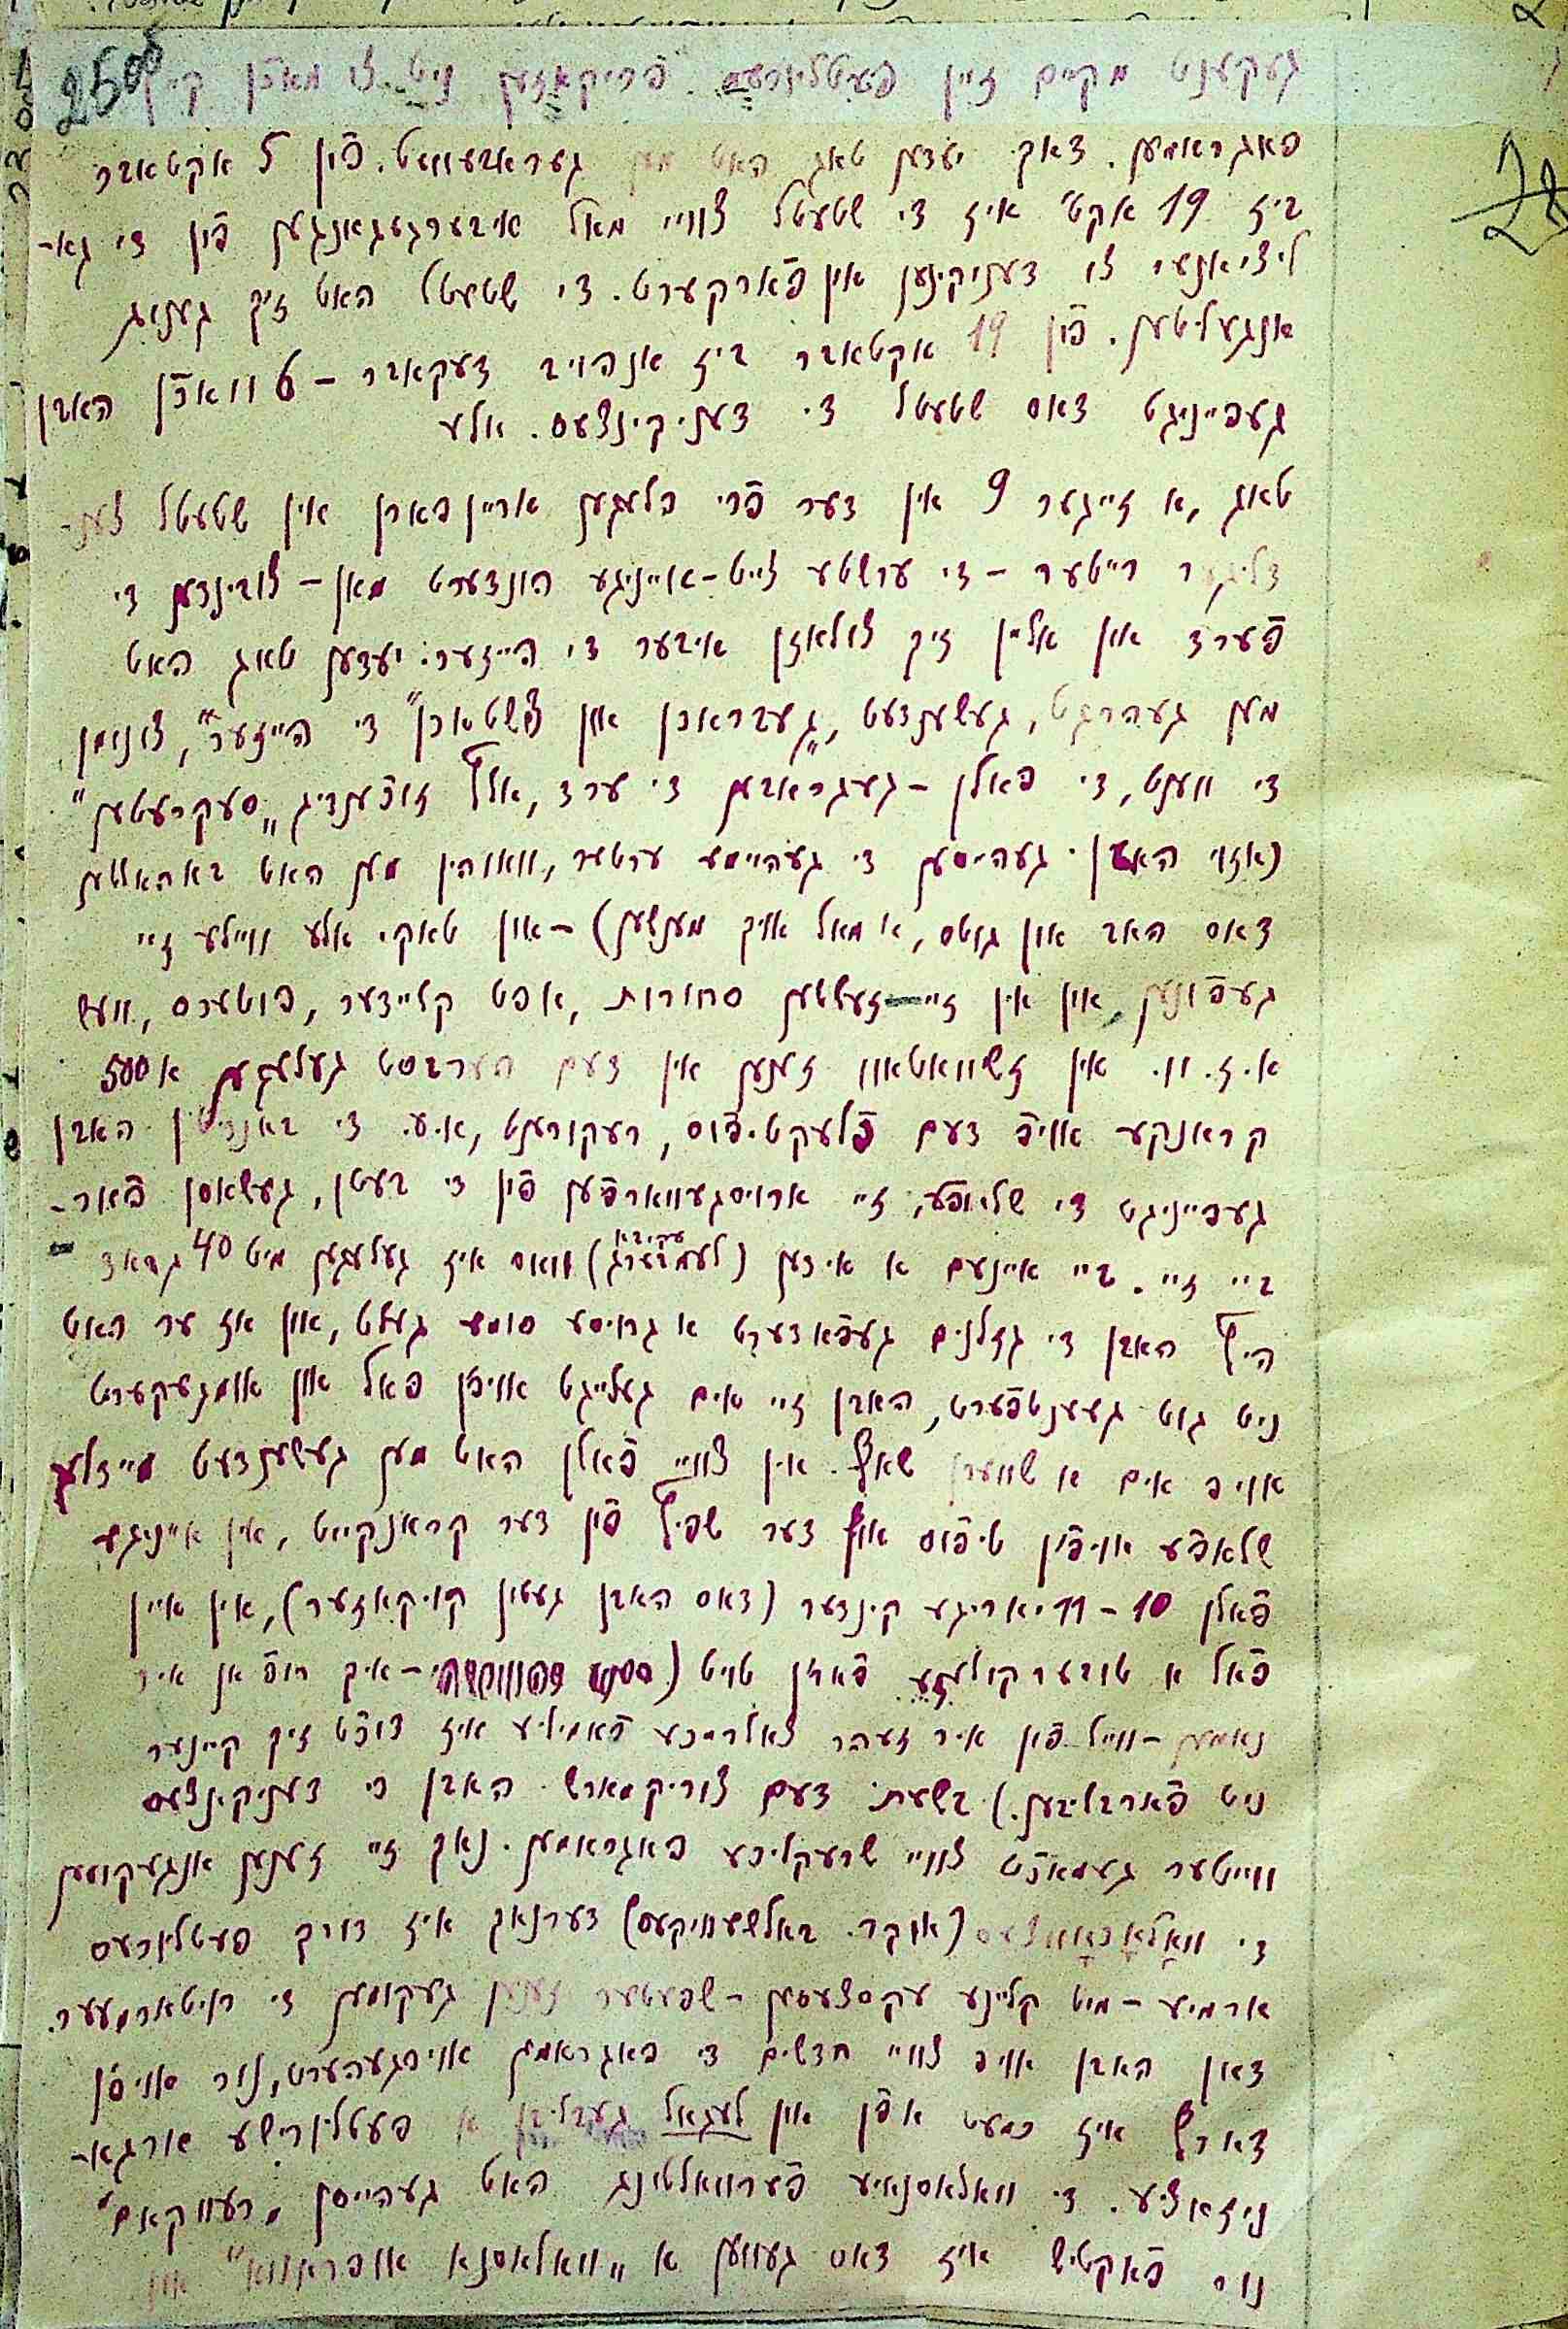 250
28
געקענט מקיים זיין פּעטליורעס "פּריקאזען ניט צו מאכן קיין
פּאגראמען. דאך יעדען טאג האט מען געראבעוועט. פון 5 אקטאבר
ביז 19 אקט' איז די שטעטל צוויי מאל איבערגעגאנגען פון די גא-
ליציאנער צו דעניקינען און פארקערט. די שטעטל האט זיך גענוג
אנגעליטען. פון 19 אקטאבר ביז אנהויב דעקאבר – 6 וואכן האבן
געפּייניגט דאס שטעטל די דעניקינצעס. אלע
טאג, א זייגער 9 אין דער פרי פלעגען אריינפארן אין שטעטל צענ-
דליגער רייטער – די ערשטע צייט – אייניגע הונדערט מאן – צובינדען די
פערד און אליין זיך צולאזן איבער די הייזער. יעדען טאג האט
מען געהרגט, געשענדעט, "געבראכן און צעשטארן" די הייזער", צונומן
די ווענט, די פּאלן – געגראבען די ערד, אלץ זוכענדיג "סעקרעטען"
(אזוי האבן געהייסען די געהיימע ערטער, וואוהין מען האט באהאלטען
דאס האב און גוטס, א מאל אויך מענשען) – און טאקי אלע ווײלע זיי
געפונען און אין זיי זעלטען סחורות, אפט קליידער, פוטערס, וועש
א. ז. וו. אין זשוואטאוו זענען אין דעם הערבסט געלעגען א 500
קראנקע אויף דעם פלעקטיפוס, רעקורענט, א. ע. די באנדיטן האבן
געפּייניגט די שלאפע, זיי ארויסגעווארפען פון די בעטן, געשאסן פאר-
ביי זיי. ביי איינעם א אידען (עקיבא לעמבערג) וואס איז געלעגען מיט 40 גראד
היץ האבן די גזלנים געפאדערט א גרויסע סומע געלט, און אז ער האט
ניט גוט געענטפערט, האבן זיי אים געלייגט אויפן פּאל און אומגעקערט
אויף אים א שווערן שאף. אין צוויי פאלן האט מען געשענדעט מיידלעך
שלאפע אויפן טיפוס אויף דער שפּיץ פון דער קראנקייט, אין אייניגע
פאלן 10 – 11 יאריגע קינדער (דאס האבן געטון קויקאזער), אין איין
פאל א טובערקולעזע פארן טויט ( – איך רוף אן איר
נאמען – ווייל פון איר זעהר צאלרייכע פאמיליע איז דוכט זיך קיינער
ניט פארבליבען.) בשעת דעם צוריקמארש האבן די דעניקינצעס
ווייטער געמאכט צוויי שרעקליכע פּאגראמען. נאך זיי זענען אנגעקומען
די וואלאכאווצעס (אוקר. באלשעוויקעס) דערנאך איז דורך פּעטליורעס
ארמיע – מיט קליינע עקסצעסען – שפּעטער זענען געקומען די רויטארמעער.
דאן האבן אויף צוויי חדשים די פּאגראמען אויפגעהערט, נור אויפן
דארף איז כמעט אפן און לעגאל געבליבן א פּעטליורישע ארגא-
ניזאציע. די וואלאסנאיע פערוואלטונג האט געהייסן "רעווקאם"
נור פאקטיש איז דאס געווען א "וואלאסנא אופּראווא" און